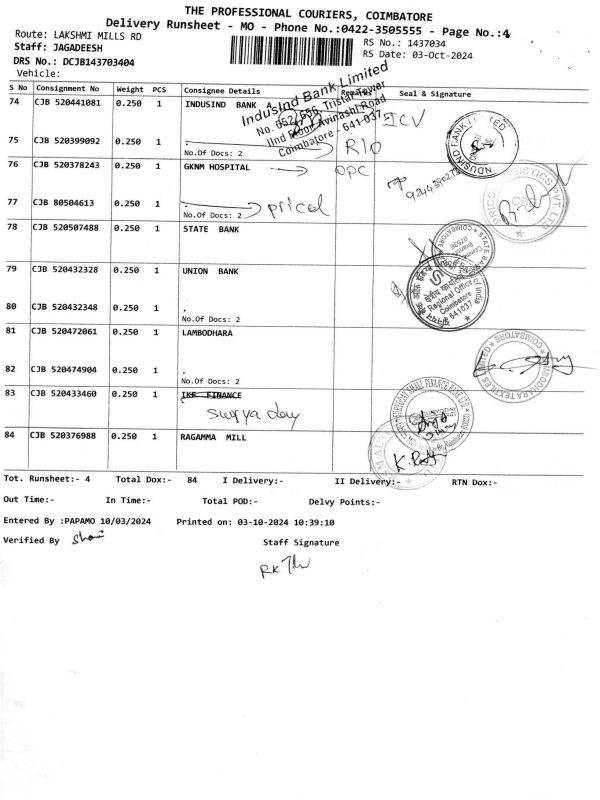 THE PROFESSIONAL COURIERS, COIMBATORE
Delivery Runsheet - MO - Phone No.:0422-3505555 - Page No.:4
Route: LAKSHMI MILLS RD
RS No.: 1437034
Staff: JAGADEESH
RS Date: 03-Oct-2024
DRS No.: DCJB143703404
Vehicle:
S No Consignment No Weight PCS Consignee Details Remarks Seal & Signature
74 CJB 520441081 0.250 1 INDUSIND BANK
IndusInd Bank Limited
No. 952/656, Tristar Tower
IInd Floor Avinashi Road
Coimbatore - 641-037
ICV
INDUSIND BANK LIMITED
75 CJB 520399092 0.250 1 .
No.Of Docs: 2
R10
76 CJB 520378243 0.250 1 GKNM HOSPITAL
OPC
77 CJB 80504613 0.250 1 .
No.Of Docs: 2
pricol
PRICOL LOGISTICS PVT LTD
78 CJB 520507488 0.250 1 STATE BANK
79 CJB 520432328 0.250 1 UNION BANK
Regional Office
Coimbatore
641037
80 CJB 520432348 0.250 1 .
No.Of Docs: 2
81 CJB 520472061 0.250 1 LAMBODHARA
LAMBODHARA TEXTILES LIMITED COIMBATORE
82 CJB 520474904 0.250 1 .
No.Of Docs: 2
83 CJB 520433460 0.250 1 IKF FINANCE
84 CJB 520376988 0.250 1 RAGAMMA MILL
Tot. Runsheet:- 4 Total Dox:- 84 I Delivery:- II Delivery:- RTN Dox:-
Out Time:- In Time:- Total POD:- Delvy Points:-
Entered By :PAPAMO 10/03/2024 Printed on: 03-10-2024 10:39:10
Verified By
Staff Signature